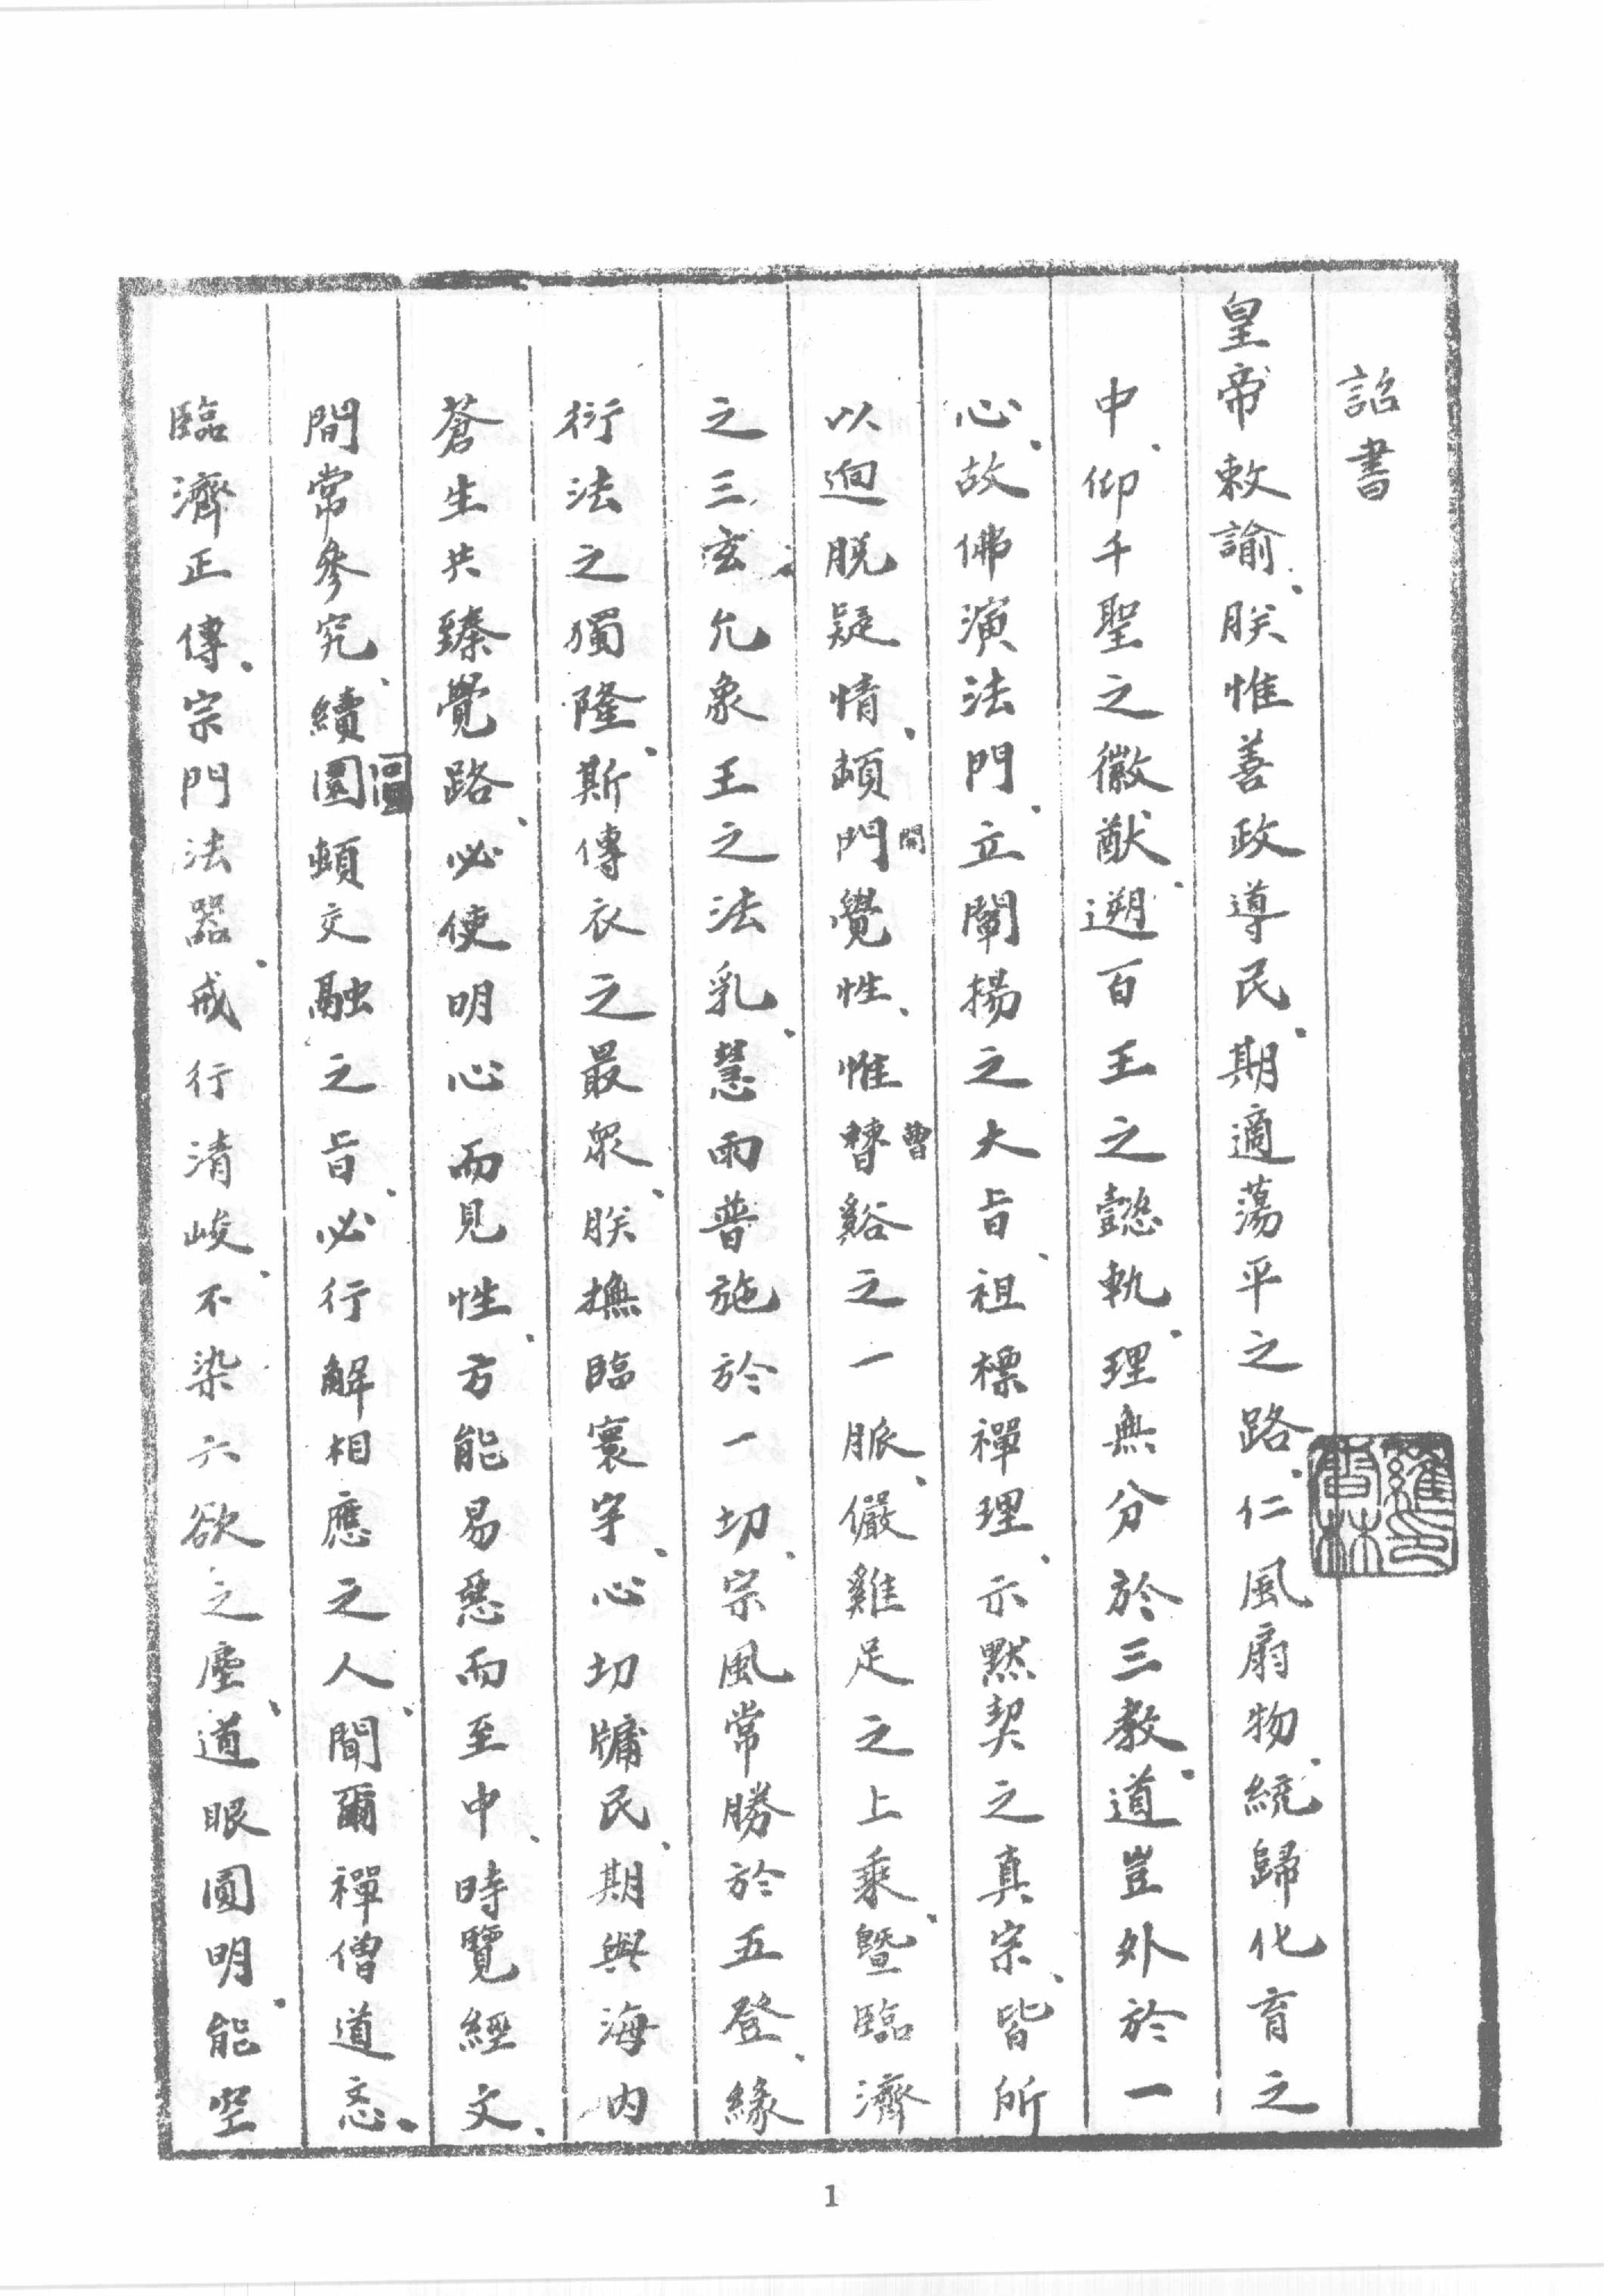 詔書
皇帝敕諭、朕惟善政導民、期適蕩平之路、仁風扇物、統歸化育之
中、仰千聖之徽猷、遡百王之懿軌、理無分於三教、道豈外於一
心、故佛演法門、立闡揚之大旨、祖標禪理、示默契之真宗、皆所
以迥脱疑情、頓門開覺性、惟瞽曹谿之一脈、儼雞足之上乘、暨臨濟
之三玄、允象王之法乳、慧雨普施於一切、宗風常勝於五登、緣
衍法之獨隆、斯傳衣之最眾、朕撫臨寰宇、心切牖民、期與海内
蒼生共臻覺路、必使明心而見性、方能易惡而至中、時覽經文、
間常參究、續圜圓頓交融之旨、必行解相應之人、聞爾禪僧道忞、
臨濟正傳、宗門法器、戒行清峻、不染六欲之塵、道眼圓明、能空
1